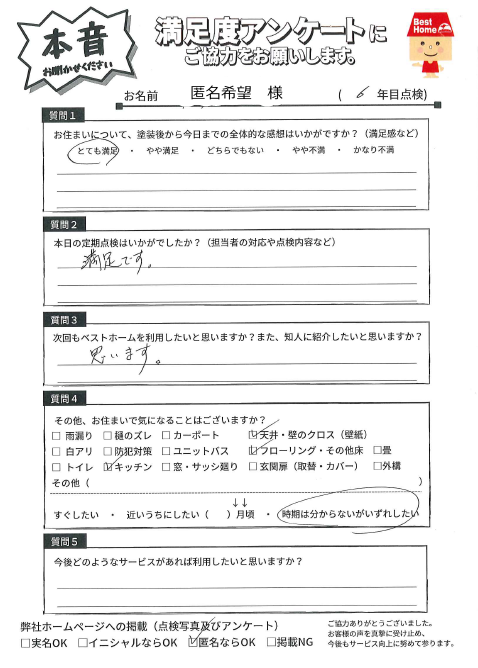 本音
お聞かせください
満足度アンケートに
ご協力をお願いします。
Best
Home
お名前 匿名希望 様 ( 6 年目点検)
質問1
お住まいについて、塗装後から今日までの全体的な感想はいかがですか？（満足感など）
とても満足 ・ やや満足 ・ どちらでもない ・ やや不満 ・ かなり不満
質問2
本日の定期点検はいかがでしたか？（担当者の対応や点検内容など）
満足です。
質問3
次回もベストホームを利用したいと思いますか？また、知人に紹介したいと思いますか？
思います。
質問4
その他、お住まいで気になることはございますか？
□ 雨漏り □ 樋のズレ □ カーポート ☑ 天井・壁のクロス（壁紙）
□ 白アリ □ 防犯対策 □ ユニットバス ☑ フローリング・その他床 □畳
□ トイレ ☑ キッチン □ 窓・サッシ廻り □ 玄関扉（取替・カバー） □外構
その他（ ）
↓↓
すぐしたい ・ 近いうちにしたい（ ）月頃 ・ 時期は分からないがいずれしたい
質問5
今後どのようなサービスがあれば利用したいと思いますか？
弊社ホームページへの掲載（点検写真及びアンケート）
□実名OK □イニシャルならOK ☑匿名ならOK □掲載NG
ご協力ありがとうございました。
お客様の声を真摯に受け止め、
今後もサービス向上に努めて参ります。